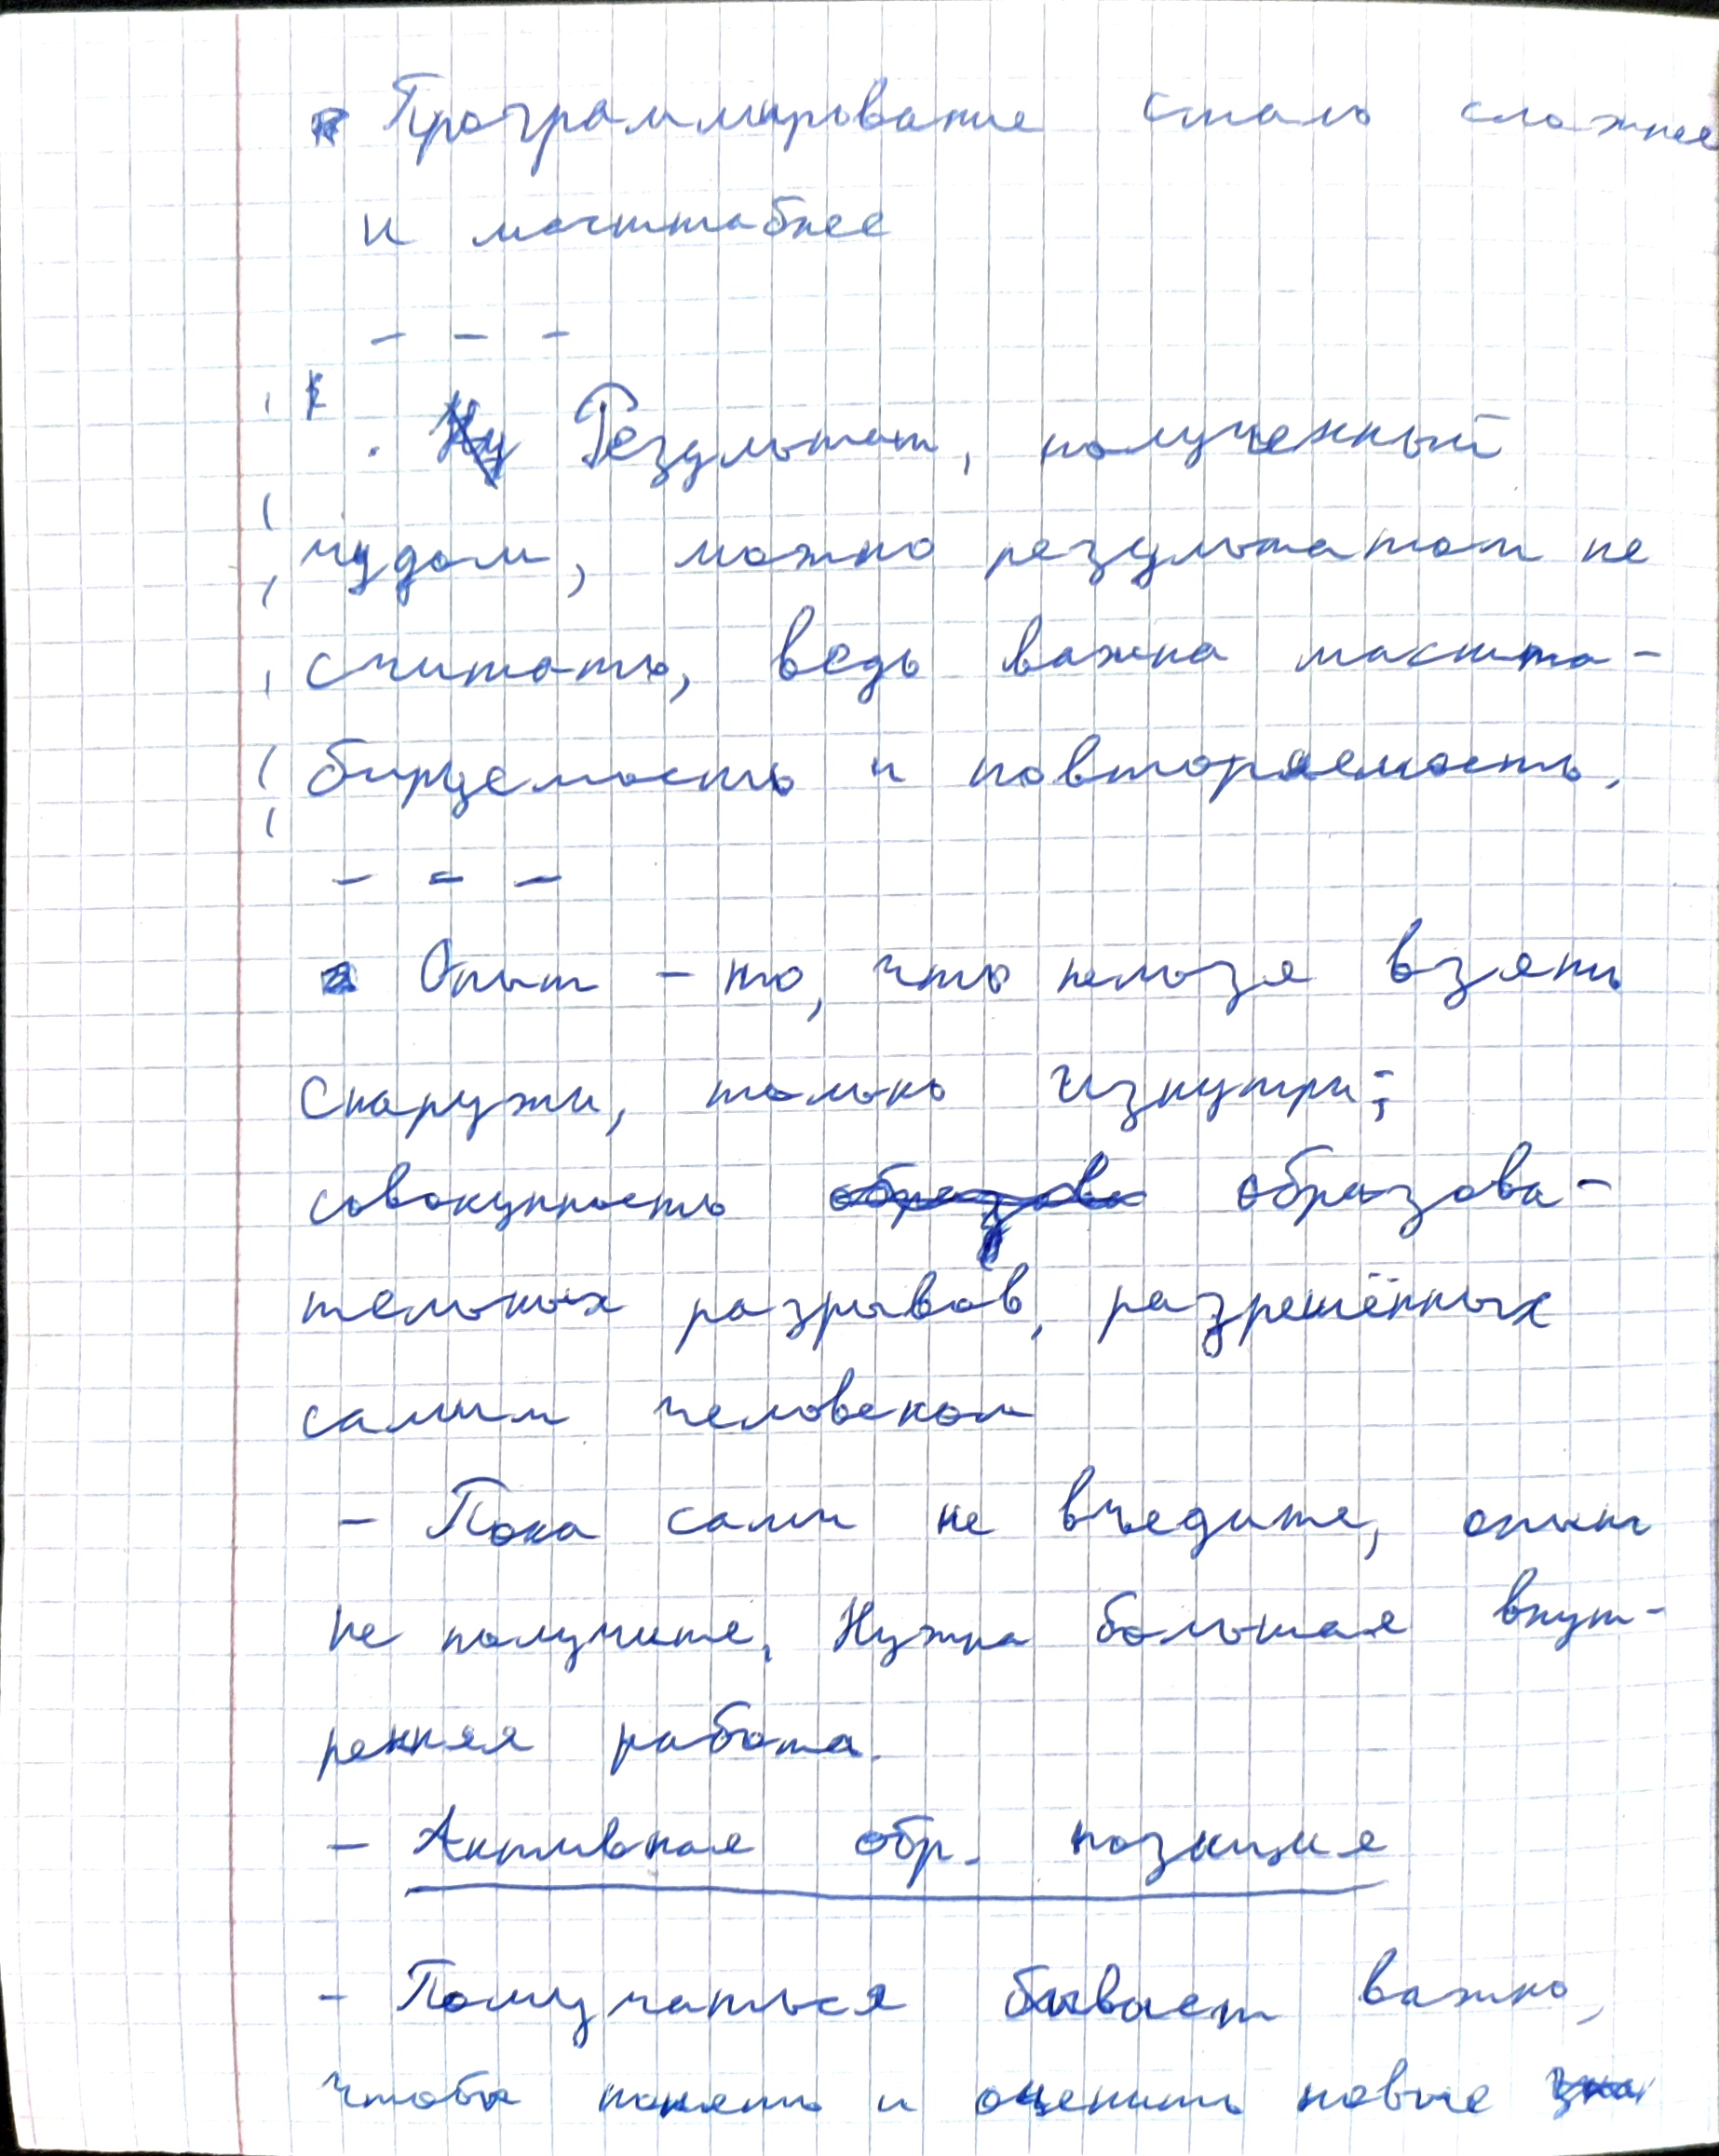 Программирование стало сложнее
и масштабнее
- - -
. Результат, полученный
чудом, можно результатом не
считать, ведь важна масшта-
бируемость и повторяемость.
- - -
Опыт - то, что нельзя взять
снаружи, только изнутри;
совокупность образова образова-
тельных разрывов, разрешённых
самим человеком
- Пока сами не въедите, опыт
не получите. Нужна большая внут-
ренняя работа.
- Активная обр. позиция
- Помучаться бывает важно,
чтобы понять и оценить новые зна